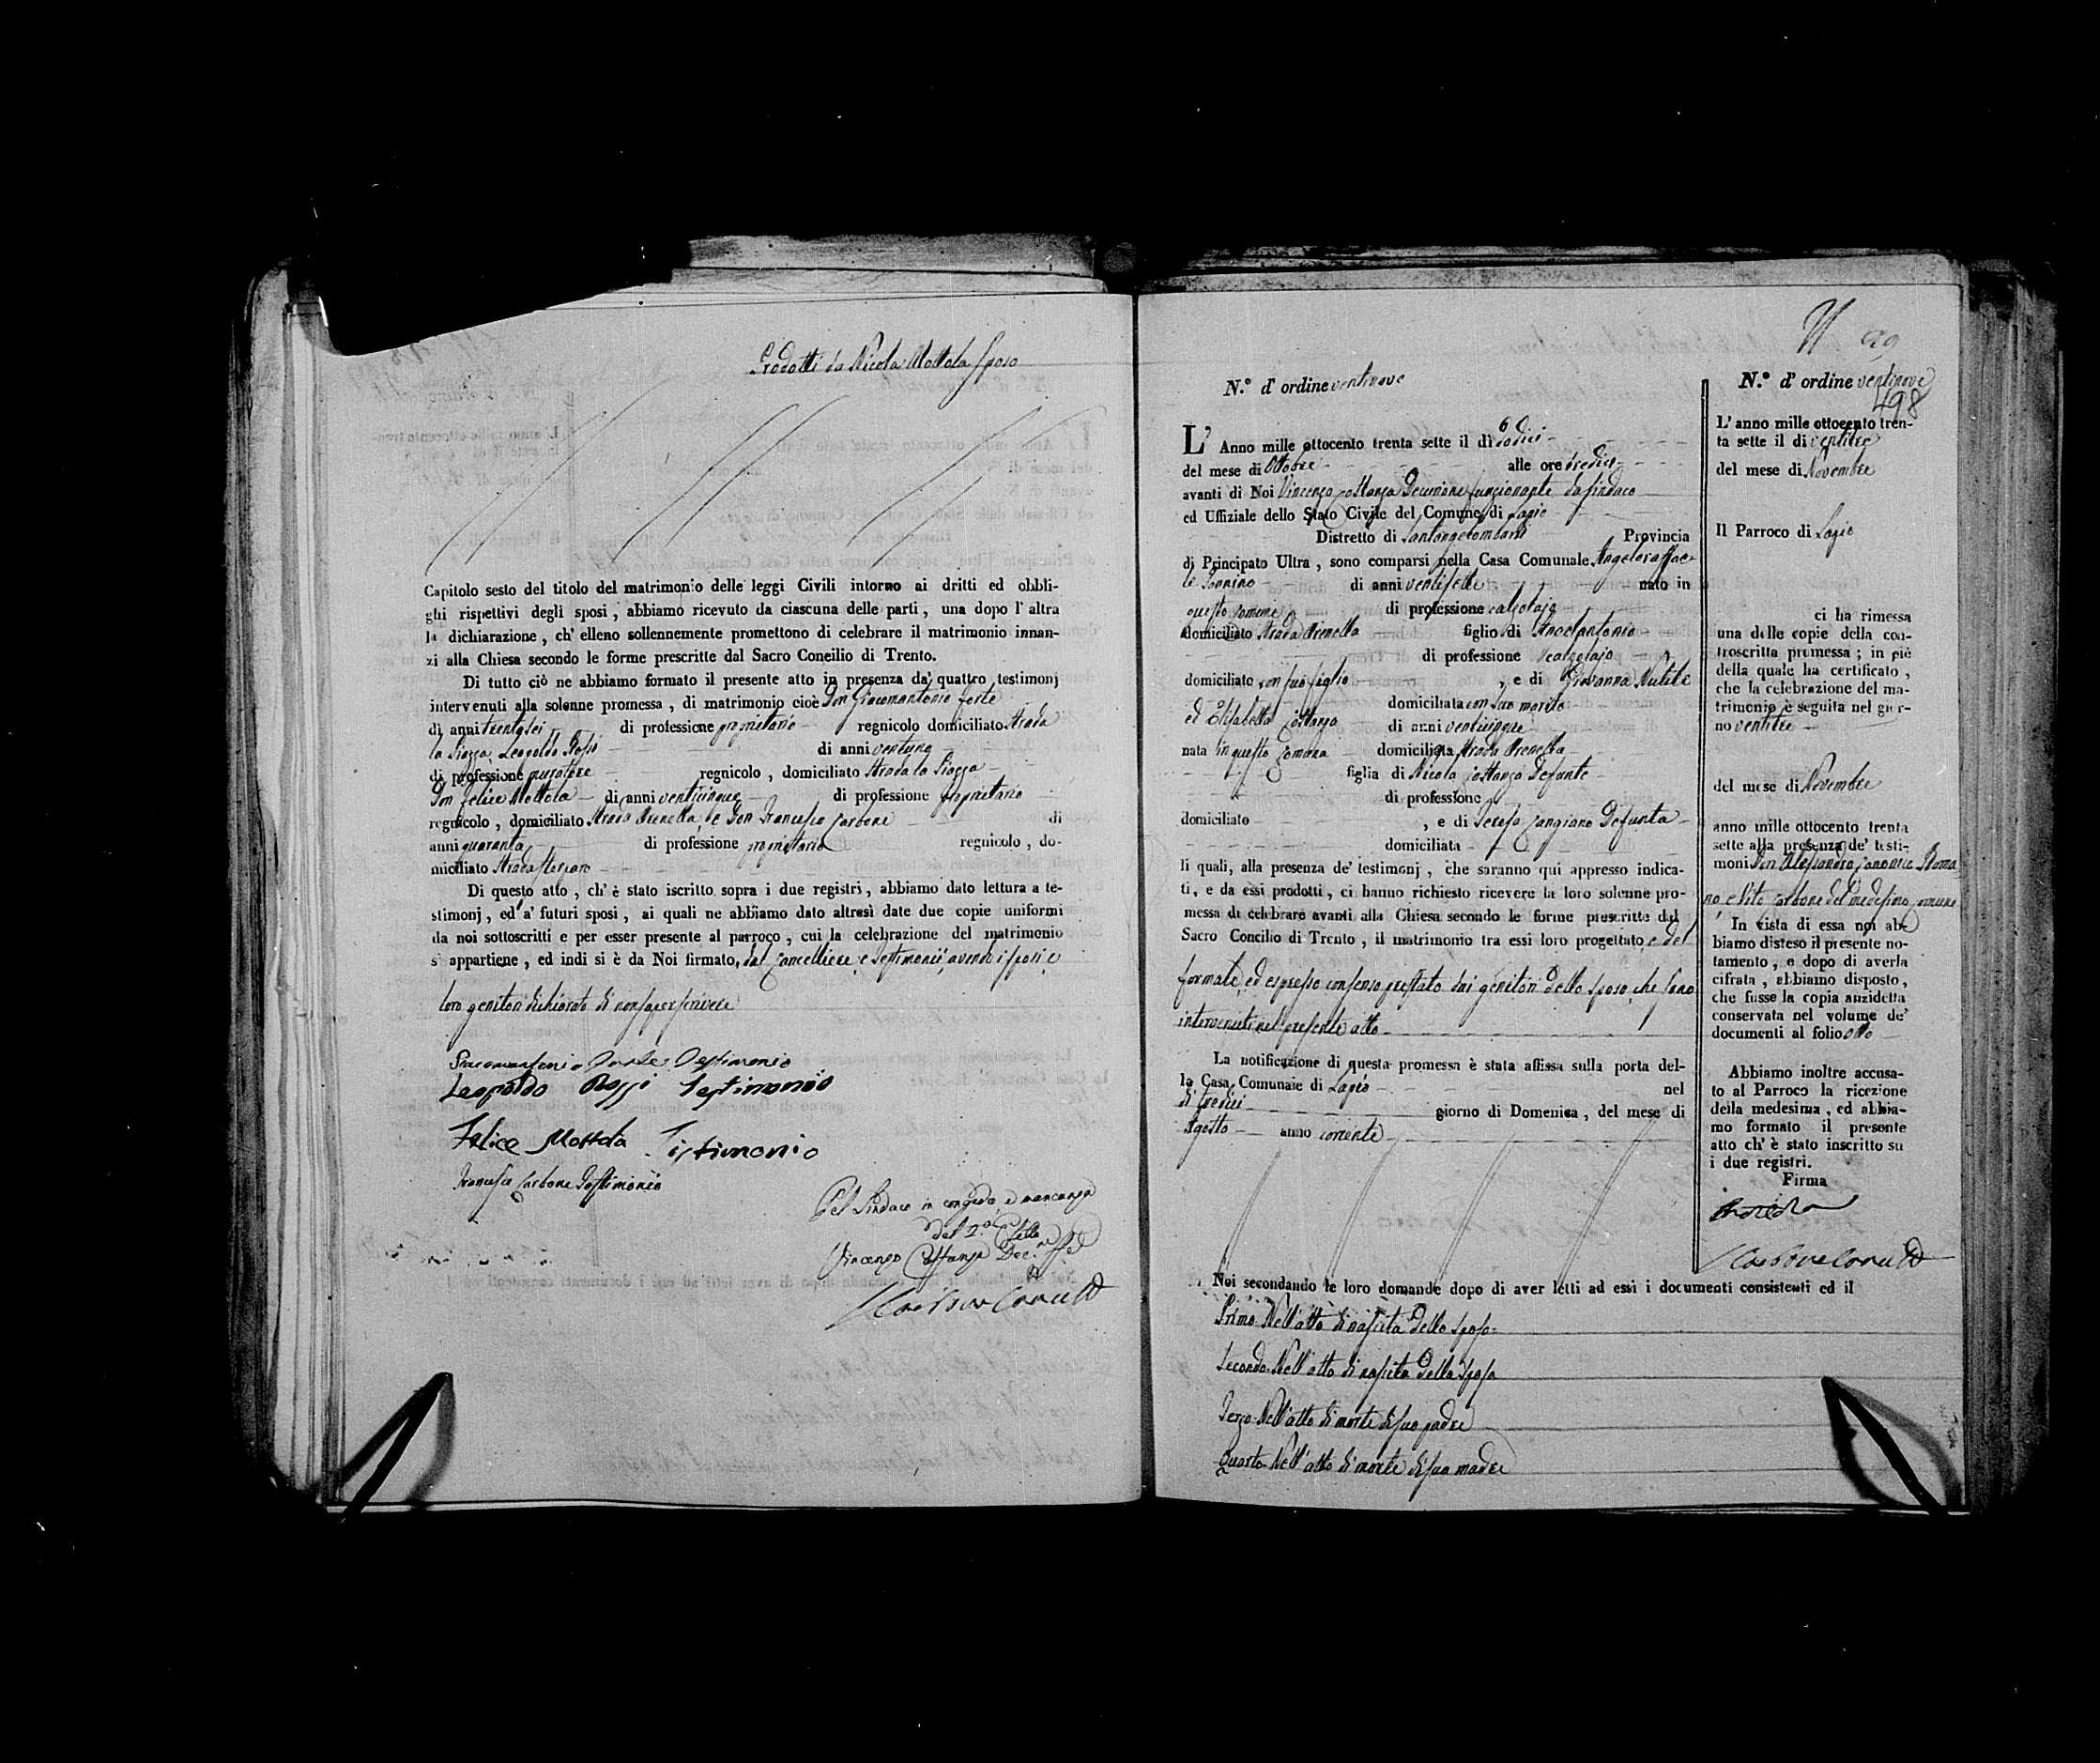 Prodotti da Nicola Mottola sposo
Capitolo sesto del titolo del matrimonio delle leggi Civili intorno ai dritti ed obbli-
ghi rispettivi degli sposi , abbiamo ricevuto da ciascuna delle parti , una dopo l' altra
la dichiarazione , ch' elleno sollennemente promettono di celebrare il matrimonio innan-
zi alla Chiesa secondo le forme prescritte dal Sacro Concilio di Trento.
Di tutto ciò ne abbiamo formato il presente atto in presenza da' quattro testimonj
intervenuti alla solenne promessa , di matrimonio cioè Don Giacomantonio Forte
di anni trentasei di professione proprietario regnicolo domiciliato Strada
la Piazza, Leopoldo Rossi di anni ventuno
di professione regnicolo , domiciliato Strada la Piazza
Don Felice Mottola di anni venticinque di professione proprietario
regnicolo , domiciliato Strada Arenella, e Don Francesco Carbone di
anni quaranta di professione proprietario regnicolo , do-
miciliato Strada
Di questo atto , ch' è stato iscritto sopra i due registri , abbiamo dato lettura a te-
stimonj , ed a' futuri sposi , ai quali ne abbiamo dato altresì date due copie uniformi
da noi sottoscritti e per esser presente al parroco , cui la celebrazione del matrimonio
s' appartiene , ed indi si è da Noi firmato, dal Cancelliere, e testimonii, avendo i sposi, e
loro genitori dichiarato di non saper scrivere
Giacomantonio Forte Testimonio
Leopoldo Rossi Testimonio
Felice Mottola Testimonio
Francesco Carbone Testimonio
Pel Sindaco in congedo, e mancanza
del 2.° Eletto
Vincenzo Costanza Dec.ne
29
N.° d' ordine ventinove
L' Anno mille ottocento trenta sette il dì dodici
del mese di Ottobre alle ore tredici
avanti di Noi Vincenzo Costanza Decurione funzionante da Sindaco
ed Uffiziale dello Stato Civile del Comune di Lagio
Distretto di Santangelombardi Provincia
di Principato Ultra , sono comparsi nella Casa Comunale Angeloraffae-
le Sonnino di anni ventisette nato in
questo Comune di professione calzolajo
domiciliato Strada Arenella figlio di Angelantonio
di professione calzolajo
domiciliato con suo figlio , e di Giovanna
domiciliata con suo marito
ed Elisabetta Costanza di anni venticinque
nata in questo Comune domiciliata Strada Arenella
figlia di Nicola Costanza Defunto
di professione
domiciliato , e di Teresa Cangiano Defunta
domiciliata
li quali, alla presenza de' testimonj , che saranno qui appresso indica-
ti, e da essi prodotti , ci hanno richiesto ricevere la loro solenne pro-
messa di celebrare avanti alla Chiesa secondo le forme prescritte dal
Sacro Concilio di Trento , il matrimonio tra essi loro progettato, e del
formale, ed espresso consenso prestato dai genitori dello sposo, che sono
intervenuti nel presente atto
La notificazione di questa promessa è stata affissa sulla porta del-
la Casa Comunale di Lagio nel
dì tredici giorno di Domenica , del mese di
Agosto anno corrente
Noi secondando le loro domande dopo di aver letti ad essi i documenti consistenti ed il
Primo Nell'atto di nascita dello sposo
Secondo Nell'atto di nascita della sposa
Terzo Nell'atto di morte di suo padre
Quarto Nell'atto di morte di sua madre
N.° d' ordine ventinove
498
L' anno mille ottocento tren-
ta sette il di ventitre
del mese di Novembre
Il Parroco di Lagio
ci ha rimessa
una delle copie della con-
troscritta promessa ; in piè
della quale ha certificato ,
che la celebrazione del ma-
trimonio è seguita nel gior-
no ventitre
del mese di Novembre
anno mille ottocento trenta
sette alla presenza de' testi-
moni Don Alessandro Canonico Roma
no, e Vito Carbone del medesimo Comune
In vista di essa noi ab-
biamo disteso il presente no-
tamento , e dopo di averla
cifrata , abbiamo disposto,
che fusse la copia anzidetta
conservata nel volume de'
documenti al folio otto
Abbiamo inoltre accusa-
to al Parroco la ricezione
della medesima , ed abbia-
mo formato il presente
atto ch' è stato inscritto su
i due registri.
Firma